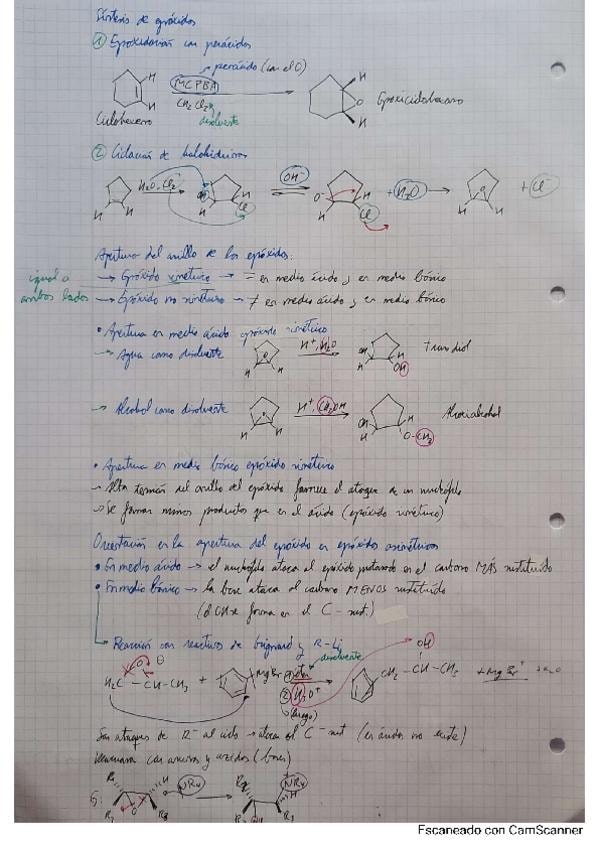 Síntesis de epóxidos
① Epoxidación con perácidos
perácido (con el O)
MCPBA
CH2Cl2
disolvente
H
H
O
H
H
Ciclohexeno
Epoxiciclohexano
② Ciclación de halohidrinas
H2O, Cl2
OH
Cl
OH-
O-
Cl
+ H2O
O
+ Cl-
H H
Apertura del anillo de los epóxidos:
igual a ambos lados
→ Epóxido simétrico → = en medio ácido y en medio básico
→ Epóxido no simétrico → ≠ en medio ácido y en medio básico
• Apertura en medio ácido epóxido simétrico
→ Agua como disolvente
H+, H2O
OH
OH
trans diol
→ Alcohol como disolvente
H+, CH3OH
OH
O-CH3
Alcoxialcohol
• Apertura en medio básico epóxido simétrico
- Alta tensión del anillo del epóxido favorece el ataque de un nucleófilo
→ Se forman menos productos que en el ácido (epóxido simétrico)
Orientación en la apertura del epóxido en epóxidos asimétricos
• En medio ácido → el nucleófilo ataca al epóxido protonado en el carbono MÁS sustituido
• En medio básico → la base ataca al carbono MENOS sustituido
(el OH se forma en el C - sust.)
→ Reacción con reactivos de Grignard y R-Li
disolvente
OH
H2C - CH-CH3
+
MgBr
① éter
② H3O+
(luego)
CH2 - CH - CH3
+ MgBr+
+ H2O
Son ataques de R- al ciclo → atacan el C - sust
(bases)
R1
H
R2
R3
O
NR4
R2
NR4
H
R1
R3
Escaneado con CamScanner